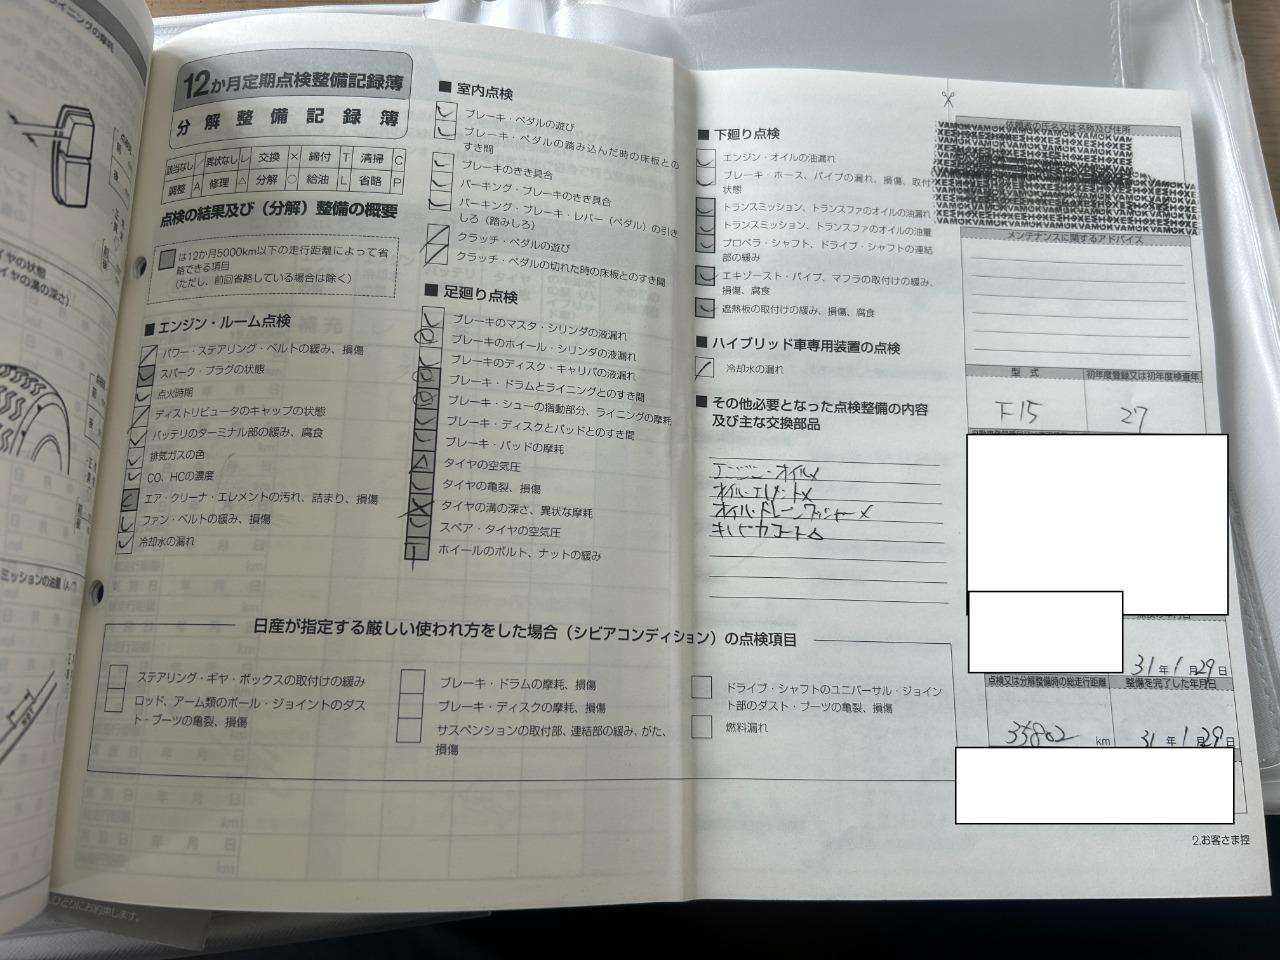 12か月定期点検整備記録簿
分解整備記録簿
該当なし / 異状なし レ 交換 × 締付 T 清掃 C
調整 A 修理 △ 分解 ○ 給油 L 省略 P
点検の結果及び（分解）整備の概要
は12か月5000km以下の走行距離によって省
略できる項目
（ただし、前回省略している場合は除く）
■ エンジン・ルーム点検
パワー・ステアリング・ベルトの緩み、損傷
スパーク・プラグの状態
点火時期
ディストリビュータのキャップの状態
バッテリのターミナル部の緩み、腐食
排気ガスの色
CO、HCの濃度
エア・クリーナ・エレメントの汚れ、詰まり、損傷
ファン・ベルトの緩み、損傷
冷却水の漏れ
■ 室内点検
ブレーキ・ペダルの遊び
ブレーキ・ペダルの踏み込んだ時の床板との
すき間
ブレーキのきき具合
パーキング・ブレーキのきき具合
パーキング・ブレーキ・レバー（ペダル）の引き
しろ（踏みしろ）
クラッチ・ペダルの遊び
クラッチ・ペダルの切れた時の床板とのすき間
■ 足廻り点検
ブレーキのマスタ・シリンダの液漏れ
ブレーキのホイール・シリンダの液漏れ
ブレーキのディスク・キャリパの液漏れ
ブレーキ・ドラムとライニングとのすき間
ブレーキ・シューの摺動部分、ライニングの摩耗
ブレーキ・ディスクとパッドとのすき間
ブレーキ・パッドの摩耗
タイヤの空気圧
タイヤの亀裂、損傷
タイヤの溝の深さ、異状な摩耗
スペア・タイヤの空気圧
ホイールのボルト、ナットの緩み
■ 下廻り点検
エンジン・オイルの油漏れ
ブレーキ・ホース、パイプの漏れ、損傷、取付
状態
トランスミッション、トランスファのオイルの油漏れ
トランスミッション、トランスファのオイルの油量
プロペラ・シャフト、ドライブ・シャフトの連結
部の緩み
エキゾースト・パイプ、マフラの取付けの緩み、
損傷、腐食
遮熱板の取付けの緩み、損傷、腐食
■ ハイブリッド車専用装置の点検
冷却水の漏れ
■ その他必要となった点検整備の内容
及び主な交換部品
エンジン・オイル×
オイル・エレメント×
オイル・ドレーンワッシャー×
依頼者の氏名又は名称及び住所
メンテナンスに関するアドバイス
型式
初年度登録又は初年度検査年
F15
27
31年1月29日
点検又は分解整備時の総走行距離
整備を完了した年月日
35802 km
31年1月29日
日産が指定する厳しい使われ方をした場合（シビアコンディション）の点検項目
ステアリング・ギヤ・ボックスの取付けの緩み
ロッド、アーム類のボール・ジョイントのダス
ト・ブーツの亀裂、損傷
ブレーキ・ドラムの摩耗、損傷
ブレーキ・ディスクの摩耗、損傷
サスペンションの取付部、連結部の緩み、がた、
損傷
ドライブ・シャフトのユニバーサル・ジョイン
ト部のダスト・ブーツの亀裂、損傷
燃料漏れ
2.お客さま控